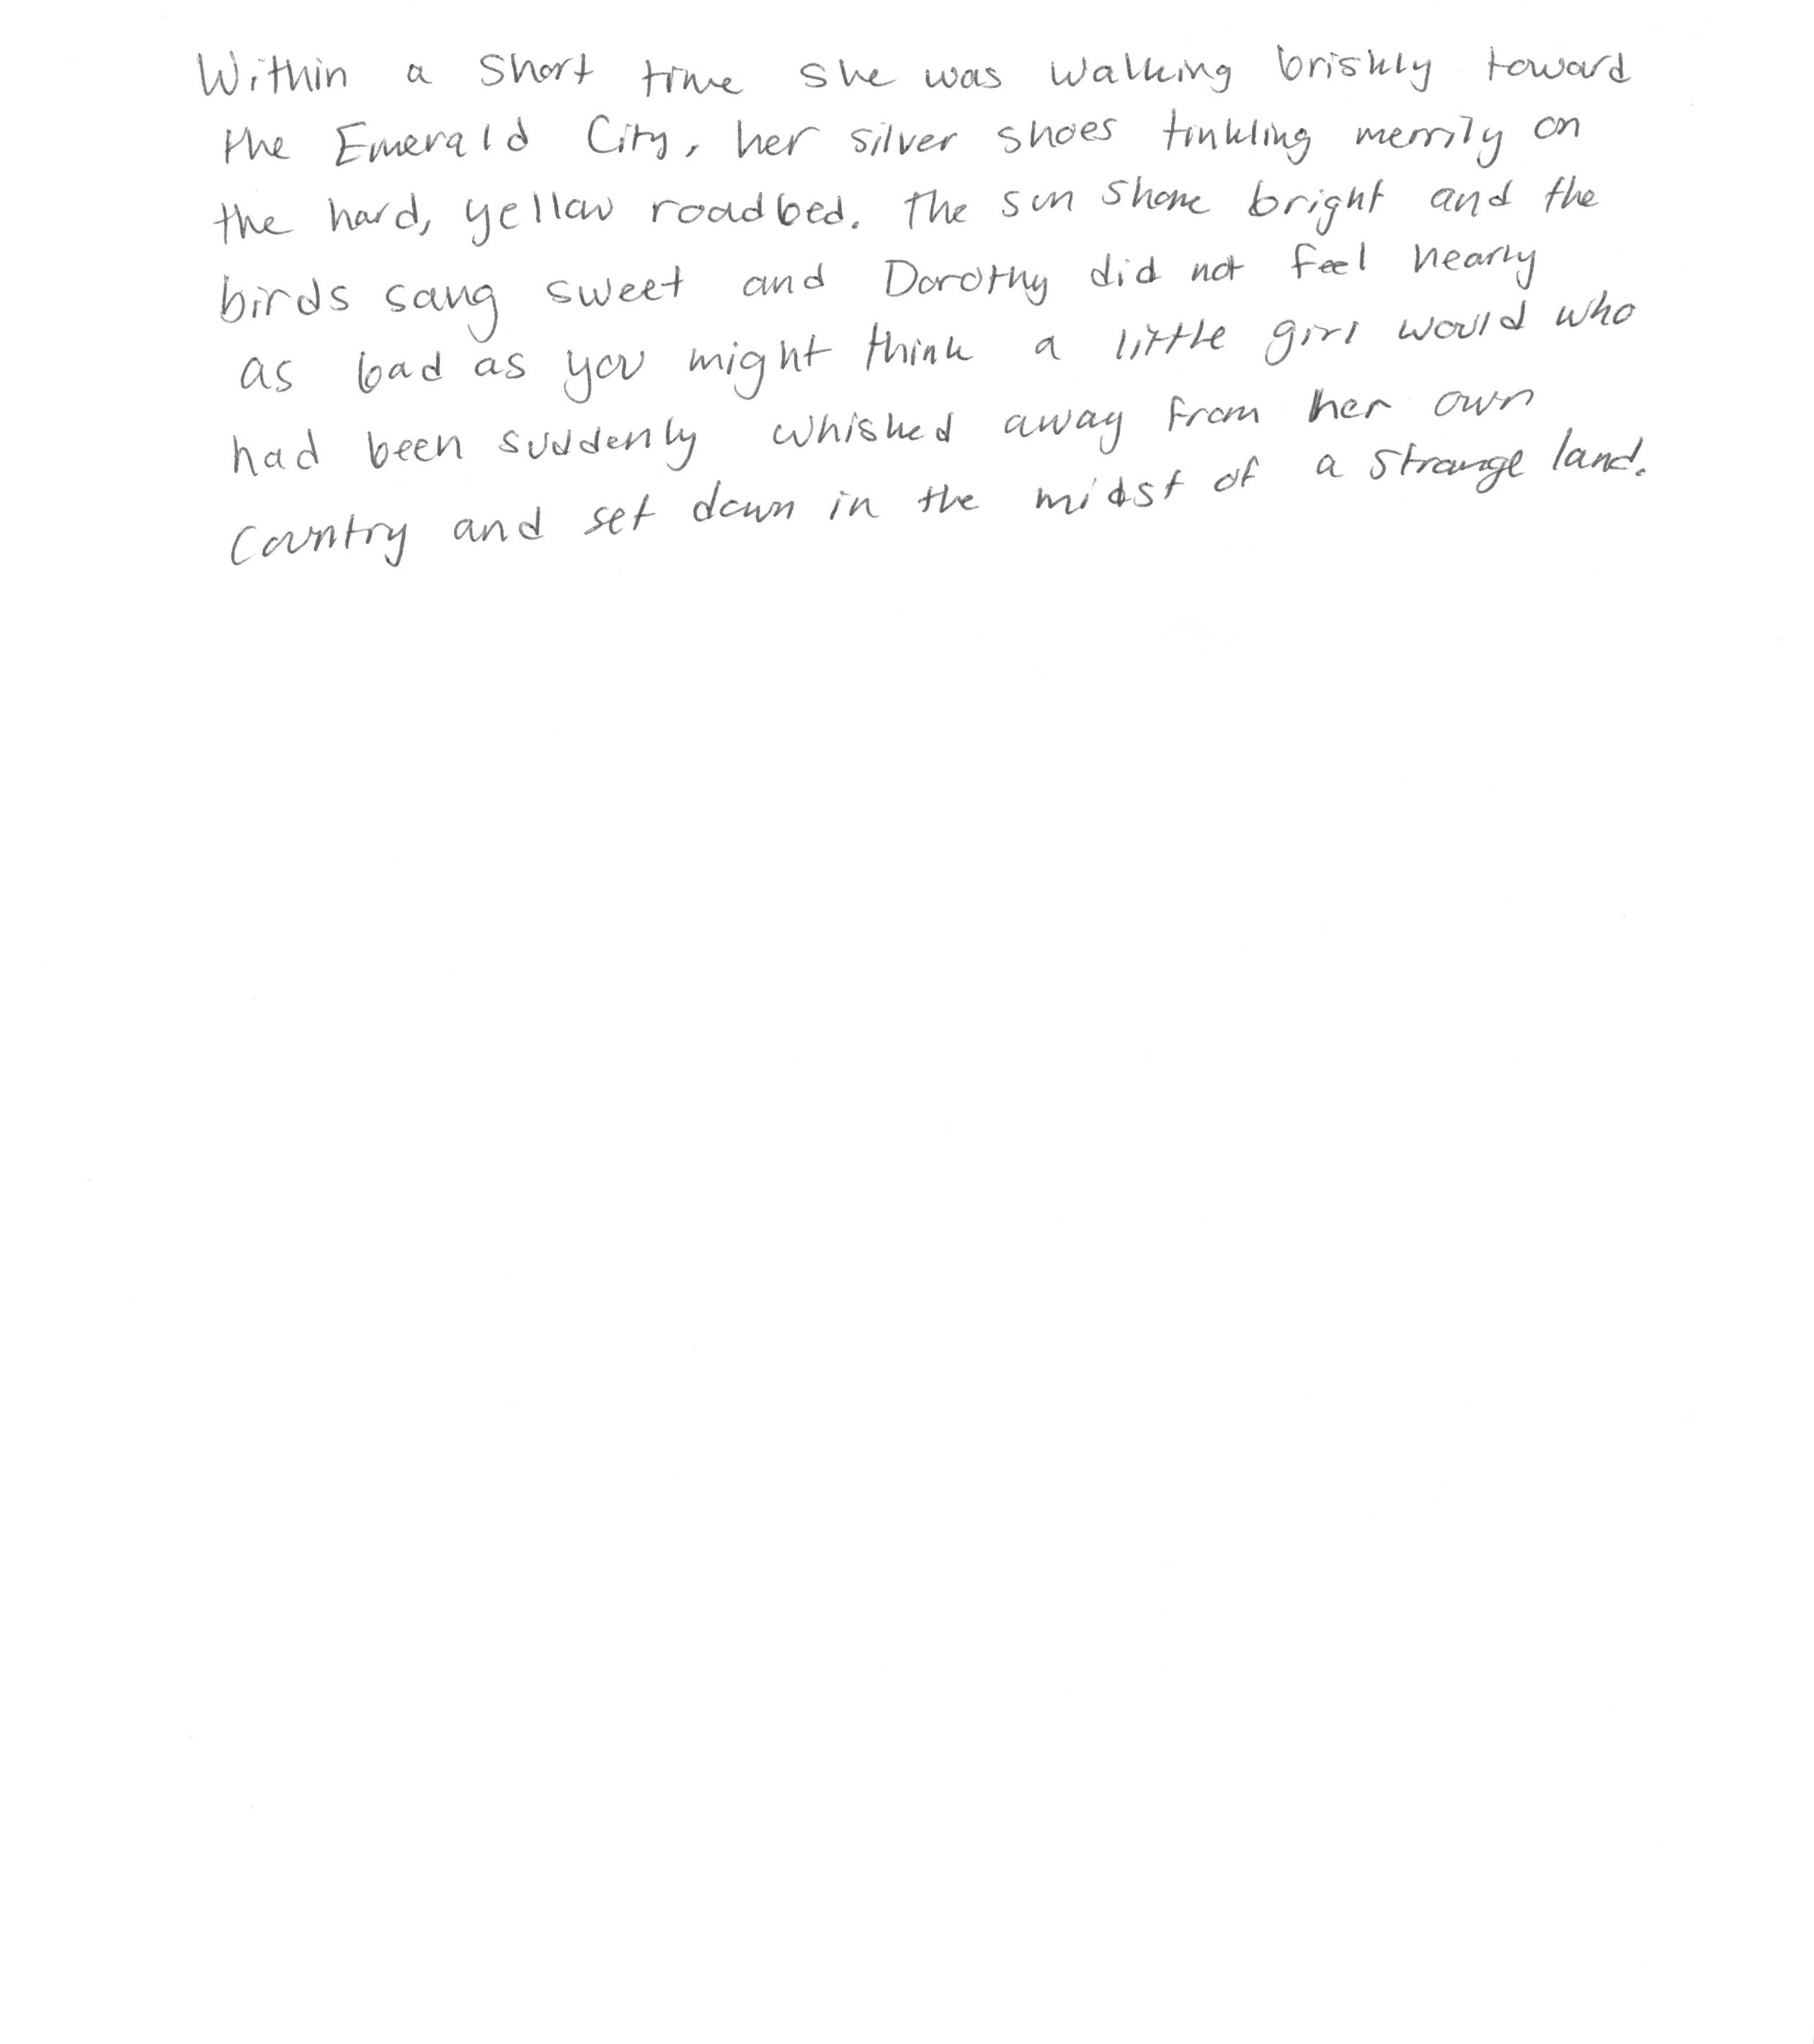 Within a short time she was walking briskly toward
the Emerald City, her silver shoes tinkling merrily on
the hard, yellow roadbed. The sun shone bright and the
birds sang sweet and Dorothy did not feel nearly
as bad as you might think a little girl would who
had been suddenly whisked away from her own
country and set down in the midst of a strange land.